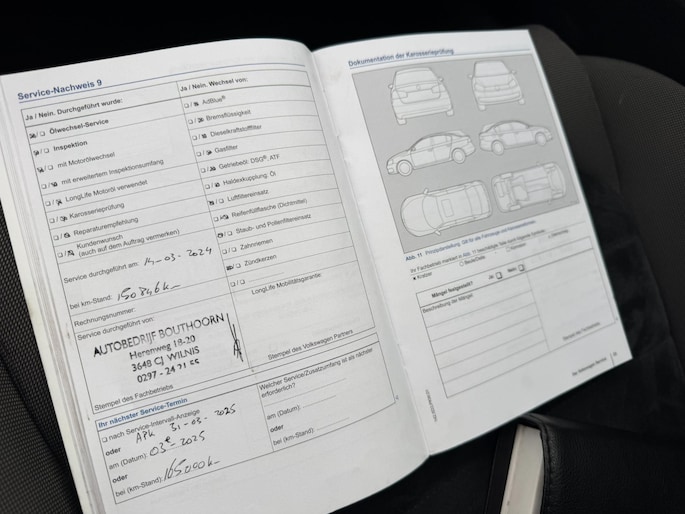 Service-Nachweis 9
Ja / Nein. Durchgeführt wurde:
Ölwechsel-Service
Inspektion
mit Motorölwechsel
mit erweitertem Inspektionsumfang
LongLife Motoröl verwendet
Karosserieprüfung
Reparaturempfehlung
Kundenwunsch
(auch auf dem Auftrag vermerken)
Service durchgeführt am: 14-03-2024
bei km-Stand:
Rechnungsnummer:
Service durchgeführt von:
AUTOBEDRIJF BOUTHOORN
Herenweg 18-20
3648 CJ WILNIS
0297-
Stempel des Fachbetriebs
Ja / Nein. Wechsel von:
AdBlue®
Bremsflüssigkeit
Dieselkraftstofffilter
Gasfilter
Getriebeöl: DSG®, ATF
Haldexkupplung: Öl
Luftfiltereinsatz
Reifenfüllflasche (Dichtmittel)
Staub- und Pollenfiltereinsatz
Zahnriemen
Zündkerzen
LongLife Mobilitätsgarantie:
Stempel des Volkswagen Partners
Ihr nächster Service-Termin
nach Service-Intervall-Anzeige
APK 31-03-2025
oder
am (Datum): 03e-2025
oder
bei (km-Stand):
Welcher Service/Zusatzumfang ist als nächster
erforderlich?
am (Datum):
oder
bei (km-Stand):
Dokumentation der Karosserieprüfung
Abb. 11 Prinzipdarstellung: Gilt für alle Fahrzeuge und Karosserieformen.
Ihr Fachbetrieb markiert in Abb. 11
Kratzer
Beule/Delle
Mängel festgestellt?
Ja:
Nein:
Beschreibung der Mängel: